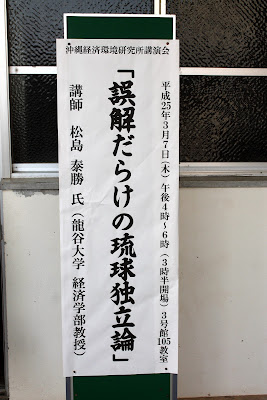 沖縄経済環境研究所講演会
平成25年3月7日(木)午後4時~6時(3時半開場)3号館105教室
「誤解だらけの琉球独立論」
講師 松島 泰勝 氏(龍谷大学 経済学部教授)